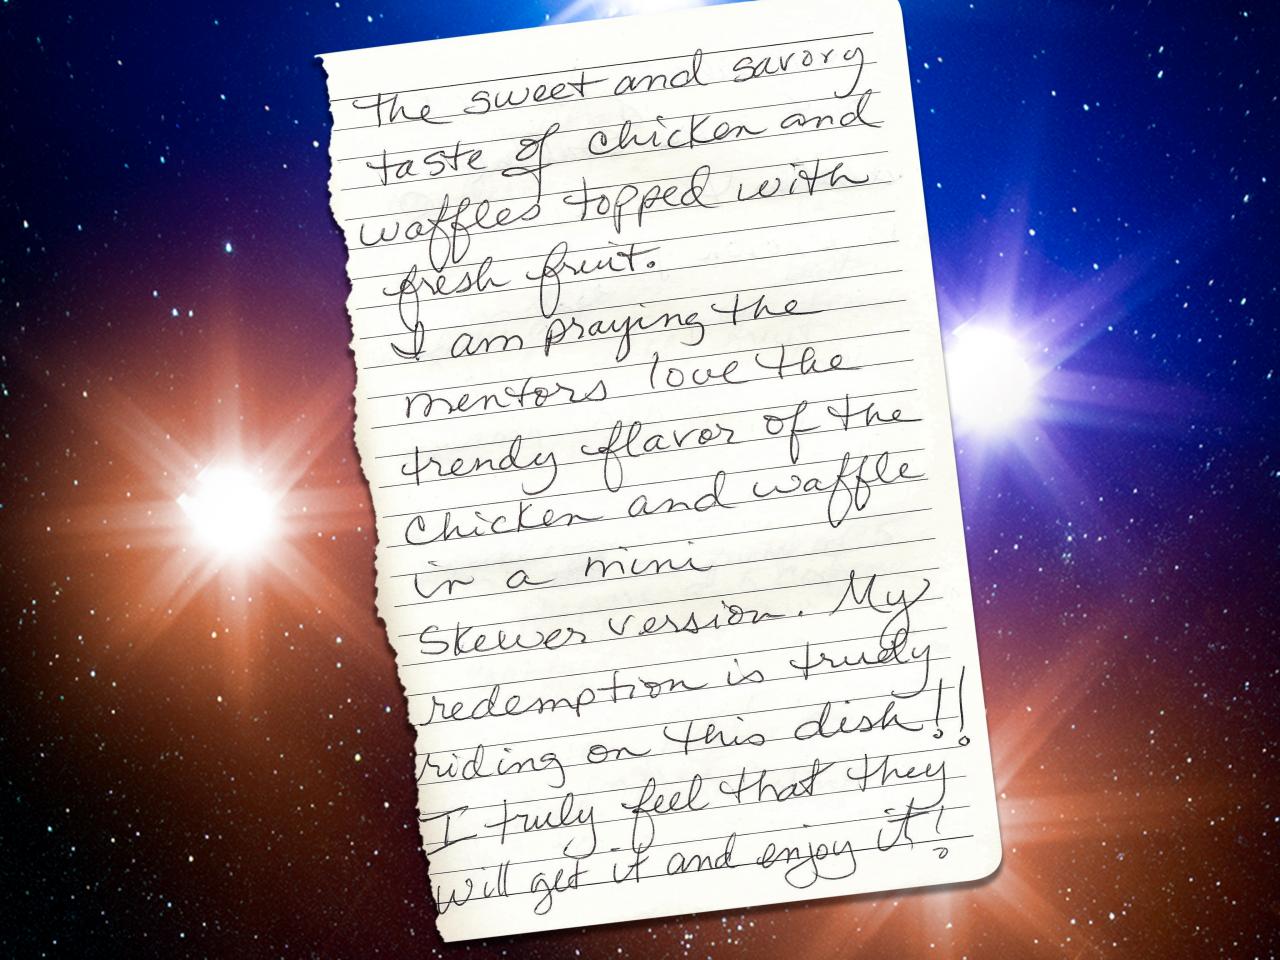 The sweet and savory
taste of chicken and
waffles topped with
fresh fruit.
I am praying the
mentors love the
trendy flavor of the
chicken and waffle
in a mini
skewer version. My
redemption is trudy
riding on this dish!!
I truly feel that they
will get it and enjoy it!